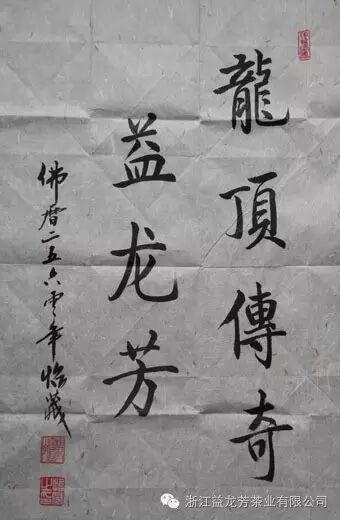 龍頂傳奇
益龙芳
佛曆二五六零年怡藏
浙江益龙芳茶业有限公司